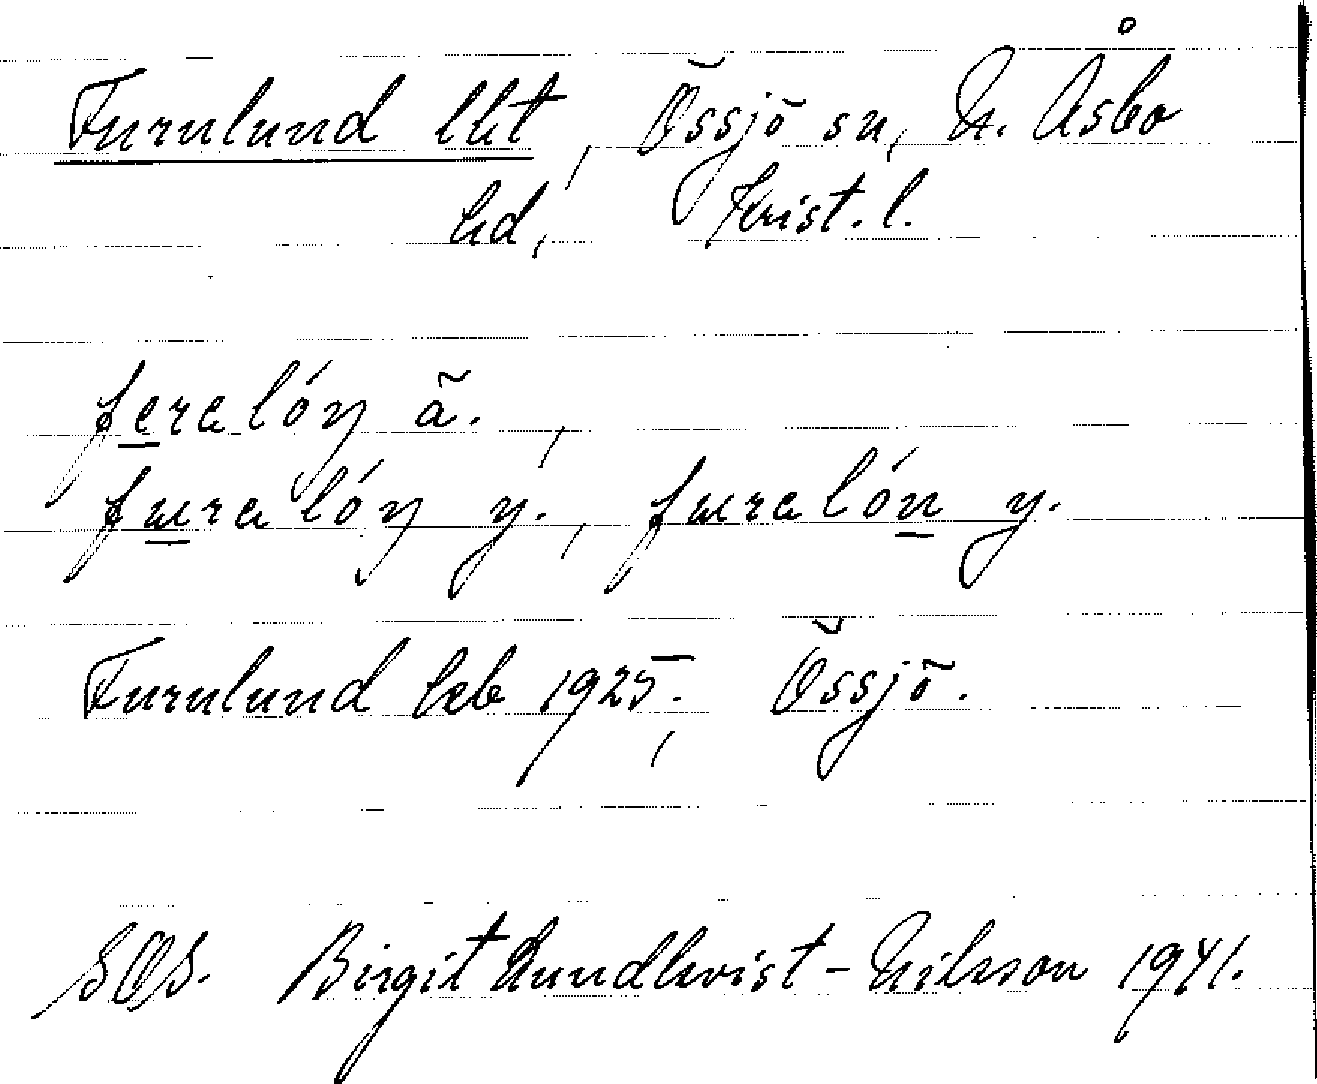 Furulund lht, Össjö sn, N. Åsbo
hd, Krist. l.
feralóŋ ä.,
furalóŋ y., furalón y.
Furulund beb 1925, Össjö.
SOS. Birgit Lundkvist-Nilsson 1941.